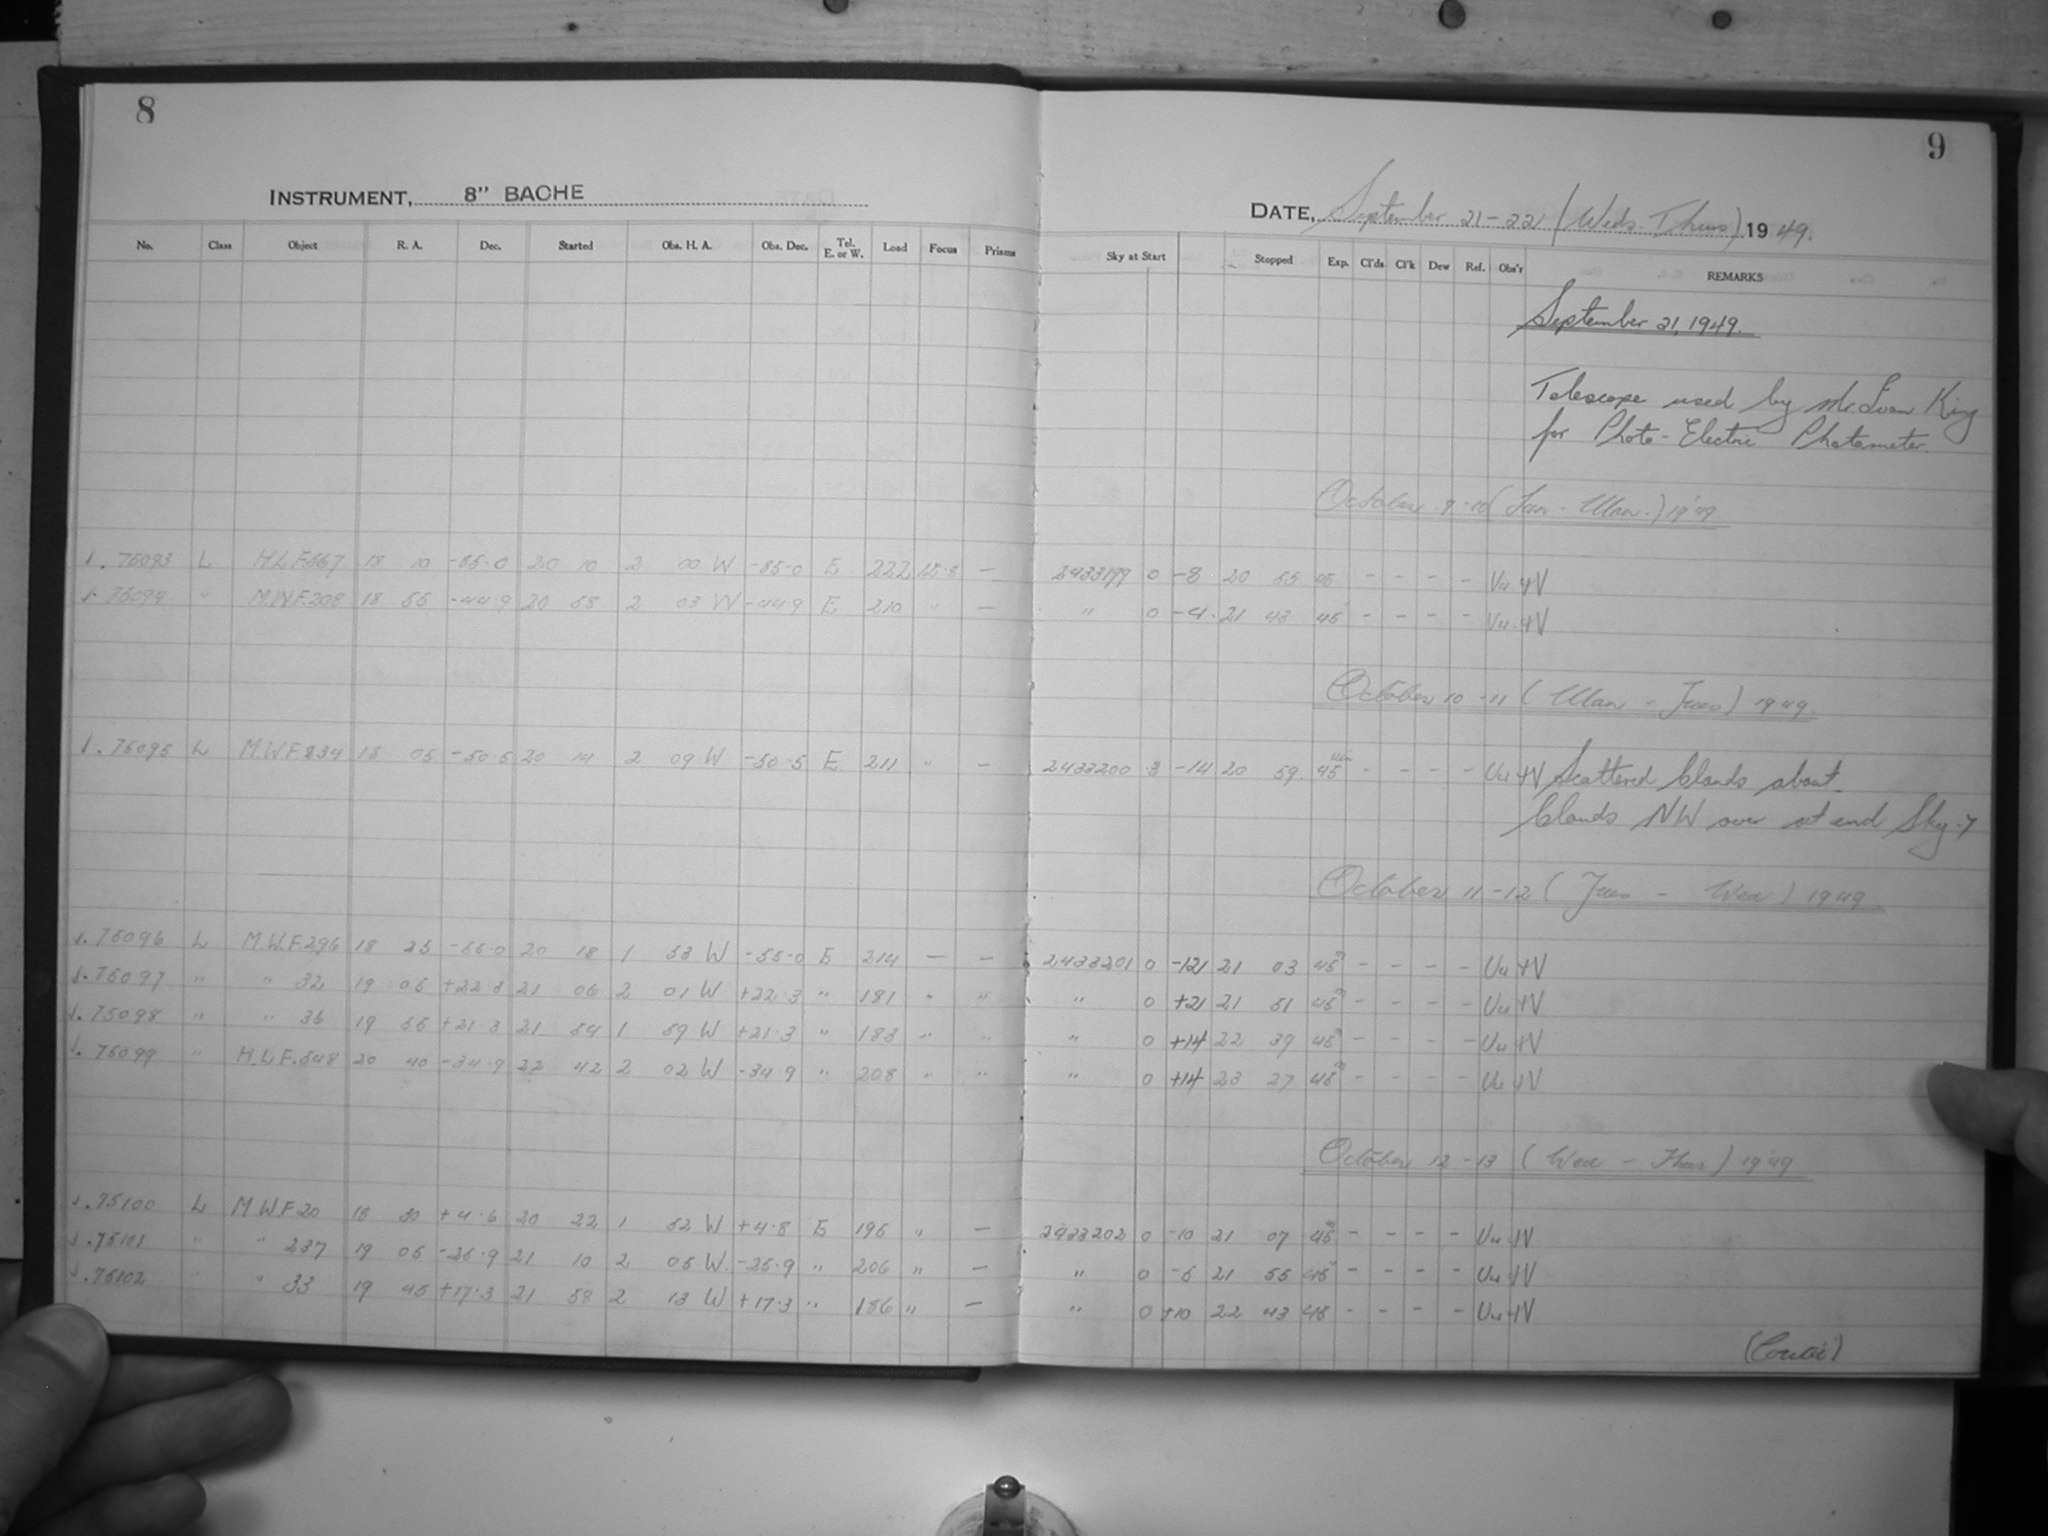 8
INSTRUMENT, 8" BACHE
No. Class Object R. A. Dec. Started Obs. H. A. Obs. Dec. Tel. E. or W. Load Focus Prisms
J. 75093 L H.L.F.567 18 10 -55.0 20 10 2 00 W -55.0 E 222 12.8 —
J. 75094 " M.W.F.208 18 55 -44.9 20 58 2 03 W -44.9 E 210 " —
J. 75095 L M.W.F.234 18 05 -50.5 20 14 2 09 W -50.5 E 211 " —
J. 75096 L M.W.F.296 18 25 -55.0 20 18 1 53 W -55.0 E 214 — —
J. 75097 " " 32 19 05 +22.3 21 06 2 01 W +22.3 " 181 " "
J. 75098 " " 36 19 55 +21.3 21 54 1 59 W +21.3 " 183 " "
J. 75099 " H.L.F.548 20 40 -34.9 22 42 2 02 W -34.9 " 208 " "
J. 75100 L M W F 20 18 30 +4.8 20 22 1 52 W +4.8 E 195 " —
J. 75101 " " 237 19 05 -25.9 21 10 2 05 W. -25.9 " 206 " —
J. 75102 " " 33 19 45 +17.3 21 58 2 13 W +17.3 " 186 " —
9
DATE, September 21-22 (Weds-Thurs) 1949.
Sky at Start Stopped Exp. Cl'ds Cl'k Dew Ref. Obs'r REMARKS
September 21, 1949.
Telescope used by Mr. Ivan King
for Photo-Electric Photometer.
October 9-10 (Sun - Mon.) 1949
2433199 0 -8 20 55 45 - - - -
" 0 -4 21 43 45 - - - -
October 10-11 (Mon - Tues) 1949.
2433200 3 -14 20 59 45 min - - - - Scattered Clouds about
Clouds NW over at end Sky-7
October 11-12 (Tues - Wed) 1949
2433201 0 -12 21 03 45 - - - -
" 0 +21 21 51 45 - - - -
" 0 +14 22 39 45 - - - -
" 0 +14 23 27 45 - - - -
October 12-13 (Wed - Thur) 1949
2433202 0 -10 21 07 45 - - - -
" 0 -5 21 55 45 - - - -
" 0 +10 22 43 45 - - - -
(Contd)